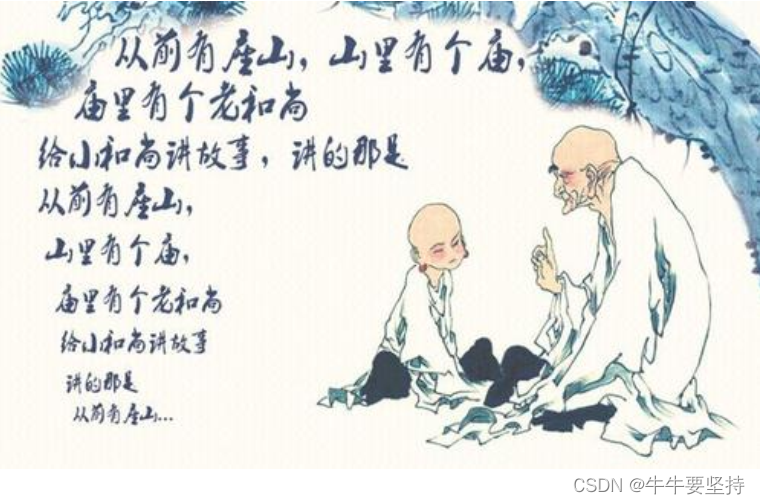 从前有座山，山里有个庙，
庙里有个老和尚
给小和尚讲故事，讲的那是
从前有座山，
山里有个庙，
庙里有个老和尚
给小和尚讲故事
讲的那是
从前有座山...
CSDN @牛牛要坚持